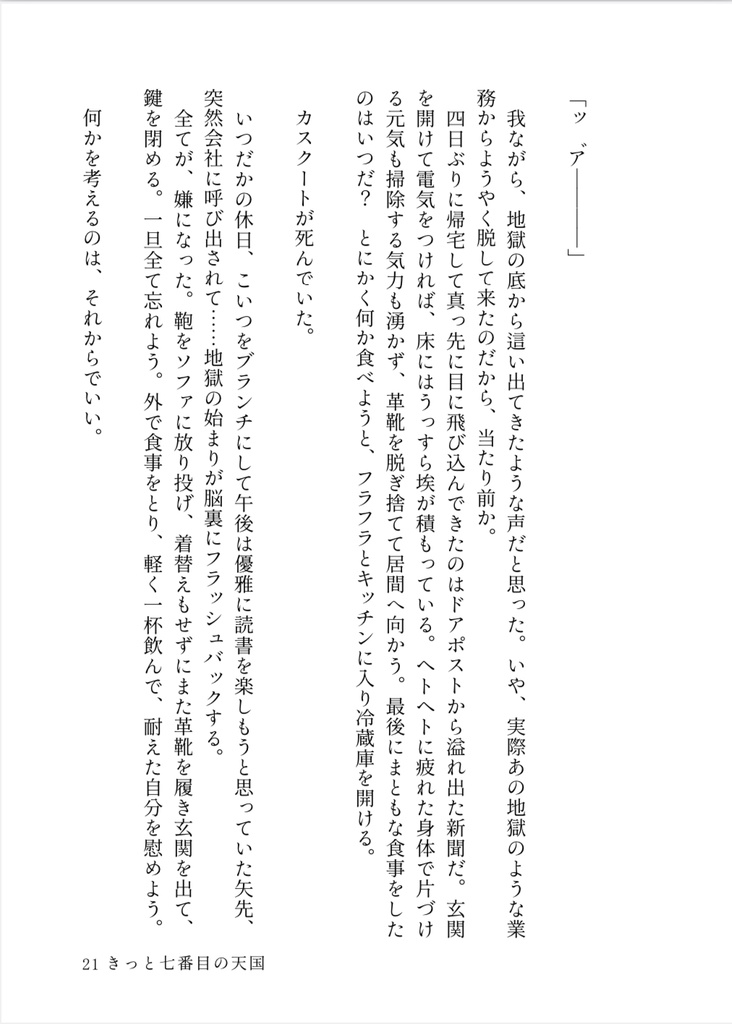 「ッ゛ア————」
　我ながら、地獄の底から這い出てきたような声だと思った。いや、実際あの地獄のような業
務からようやく脱して来たのだから、当たり前か。
　四日ぶりに帰宅して真っ先に目に飛び込んできたのはドアポストから溢れ出た新聞だ。玄関
を開けて電気をつければ、床にはうっすら埃が積もっている。ヘトヘトに疲れた身体で片づけ
る元気も掃除する気力も湧かず、革靴を脱ぎ捨てて居間へ向かう。最後にまともな食事をした
のはいつだ？　とにかく何か食べようと、フラフラとキッチンに入り冷蔵庫を開ける。
　カスクートが死んでいた。
　いつだかの休日、こいつをブランチにして午後は優雅に読書を楽しもうと思っていた矢先、
突然会社に呼び出されて……地獄の始まりが脳裏にフラッシュバックする。
　全てが、嫌になった。鞄をソファに放り投げ、着替えもせずにまた革靴を履き玄関を出て、
鍵を閉める。一旦全て忘れよう。外で食事をとり、軽く一杯飲んで、耐えた自分を慰めよう。
　何かを考えるのは、それからでいい。
21 きっと七番目の天国